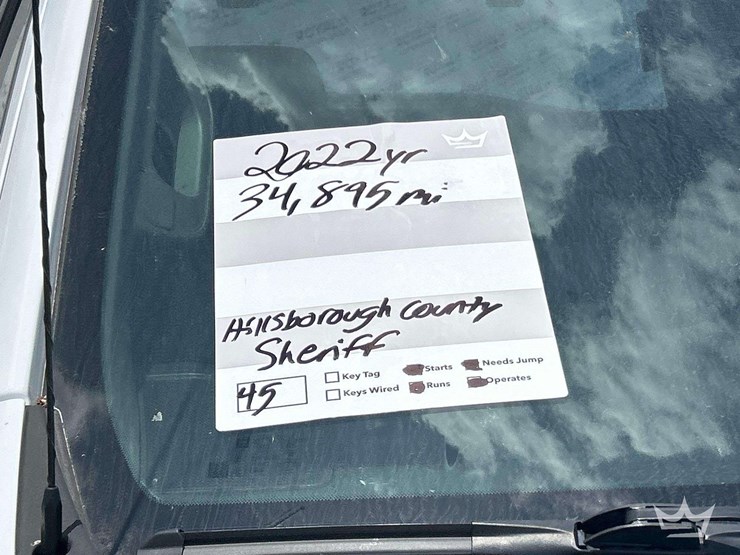 2022 yr
34,895 mi
Hillsborough County
Sheriff
45
Key Tag
Starts
Needs Jump
Keys Wired
Runs
Operates